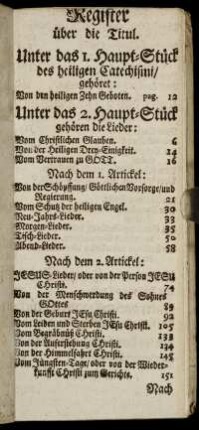 Register
über die Titul.
Unter das 1. Haupt-Stück
des heiligen Catechismi/
gehöret:
Von den heiligen Zehn Geboten. pag. 12
Unter das 2. Haupt-Stück
gehören die Lieder:
Vom Christlichen Glauben. 6
Von der Heiligen Drey-Einigkeit. 14
Vom Vertrauen zu GOTT. 16
Nach dem 1. Articel:
Von der Schöpffung/ Göttlichen Vorsorge/und
Regierung. 21
Vom Schutz der heiligen Engel. 30
Neu-Jahrs-Lieder. 33
Morgen-Lieder. 35
Tisch-Lieder. 50
Abend-Lieder. 58
Nach dem 2. Articel:
JESUS-Lieder/ oder von der Person JESU
Christi. 74
Von der Menschwerdung des Sohnes
GOttes 89
Von der Geburt JEsu Christi. 92
Vom Leiden und Sterben JEsu Christi. 105
Vom Begräbnüß Christi. 133
Von der Aufferstehung Christi. 134
Von der Himmelfahrt Christi. 145
Vom Jüngsten-Tage/ oder von der Wieder-
kunfft Christi zum Gerichte. 151
Nach